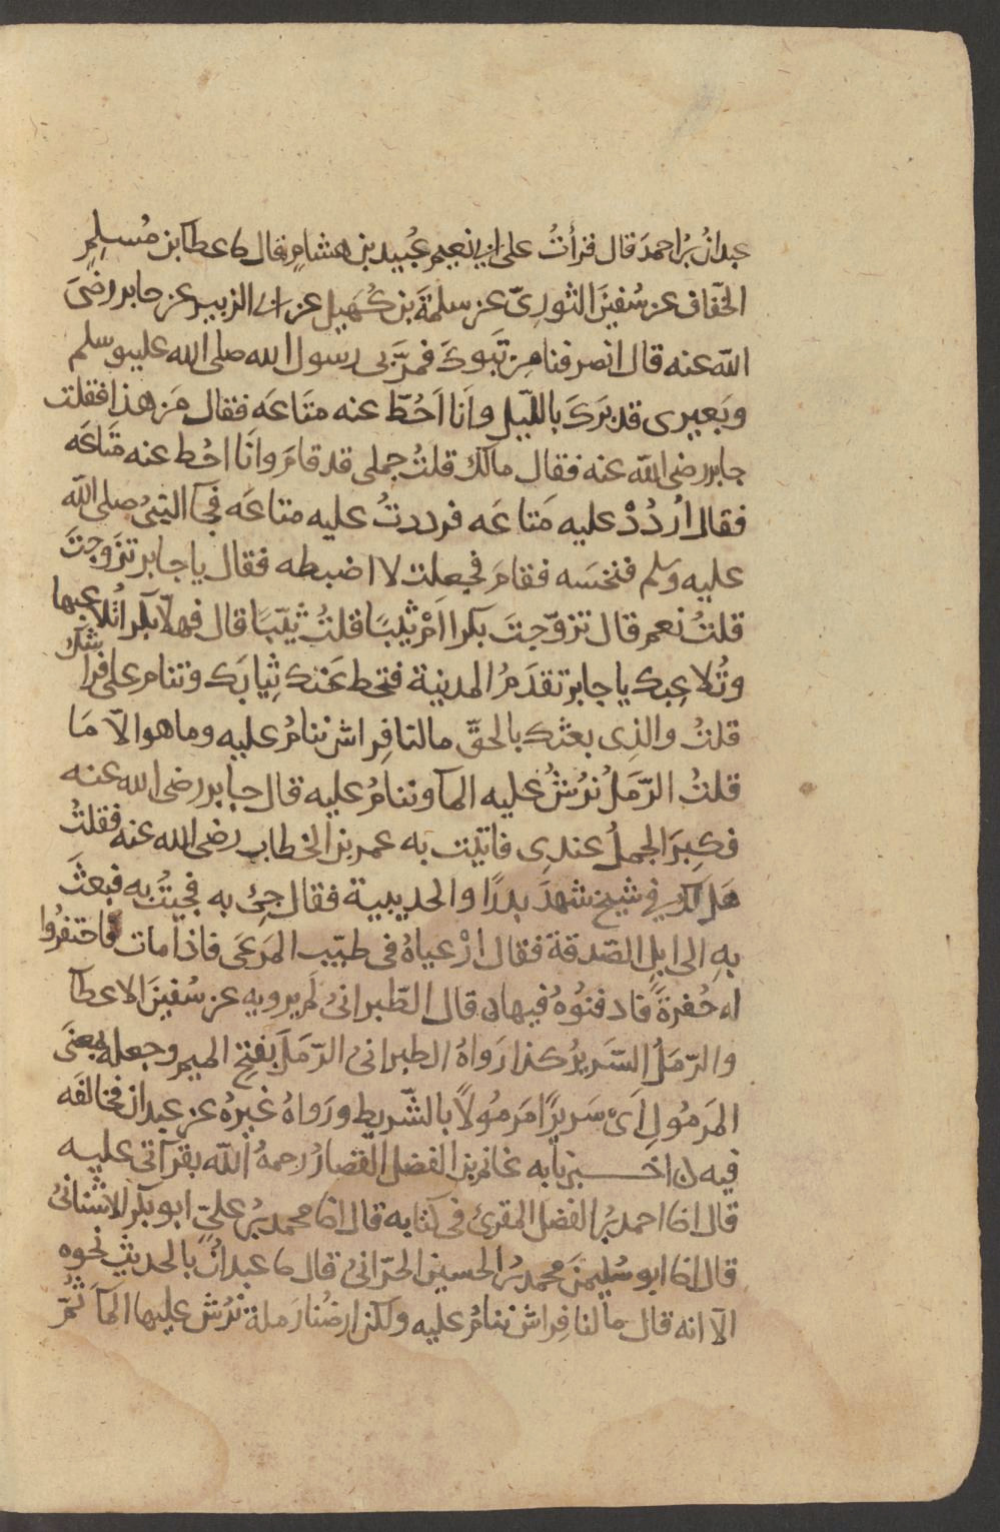 عبدانُ بنُ احمدَ قال قرأتُ على ابي نعيم عُبيد بن هشامٍ قال ثنا عطآ بن مُسلمٍ
الخفّاف عن سُفينَ الثوريّ عن سلمةَ بن كُهَيل عن ابى الزبير عن جابر رضىَ
الله عنه قال انصرفنا مِن تَبوكَ فمرّ بى رسول الله صلى الله عليه وسلم
وبَعيرى قد بَركَ بالليل وانَا اَحُطّ عنه متَاعَه فقال مَن هذا فقلت
جابر رضى الله عنه فقال مالك قلتُ جملى قد قامَ وانَا احُط عنه مَتاعَه
فقال اُردُدْ عليه مَتاعَه فرددتُ عليه متاعَه فجآ النبىُ صلى الله
عليه وَسلم فنخسَه فقامَ فجعلت لا اضبطه فقال يا جابر تزَوجتَ
قلتُ نعم قال تزوّجتَ بكرا اَمْ ثيّبَا قلتُ ثيّبًا قال فهلّا بكرا تُلاعبها
وتُلاعِبك يا جابر تقدَمُ المدينة فتحط عَنك ثِيابَك وتنام على فراشك
قلتُ والذِى بعثك بالحقّ مالنا فِراش ننامُ عليه وما هو الّا مَا
قلتُ الرّمَلُ نُرُشُّ عليه المآ وننامُ عليه قال جابر رضى الله عنه
فكبِرَ الجملُ عندِى فاتيْت به عمر بن الخطاب رضى الله عنه فقلتُ
هَل لَك فى شيخ شهدَ بدرًا والحديبية فقال جئ به فجيتُ به فبعثَ
بهِ الى ابلِ الصّدقة فقال ارْعياهُ فى طيّب المَرعَى فاذا مات فاحتفرُوا
له حُفرةً فادفنُوهُ فيها ه قال الطّبرانىُ لَم يرويه عن سُفينَ الا عطآ
والرّمَلُ السَّريرُ كذا رَواهُ الطبرانىُ الرّمَلَ بفتحِ الميم وجعله بمعنَى
المَرمُولِ اَىْ سَريرًا مَرمُولًا بالشّريط ورَواهُ غيرُه عن عبدان فخالفَه
فيه ه اخــبرنا به غانم بن الفضل القصارُ رحمهُ الله بقرآتى عليه
قال انا احمد بنُ الفضل المقرئ فى كتابه قال انا محمد بنُ علىّ ابو بكر الاشنانىُ
قال انا ابو سُليمنَ محمد بنُ الحسين الحرّانىُ قال ثنا عبدانُ بالحديثِ نحوه
الّا انه قال مالنا فِراش ننامُ عليه ولكن ارضُنا رَملة نرُش عليها المآَ ثُمّ